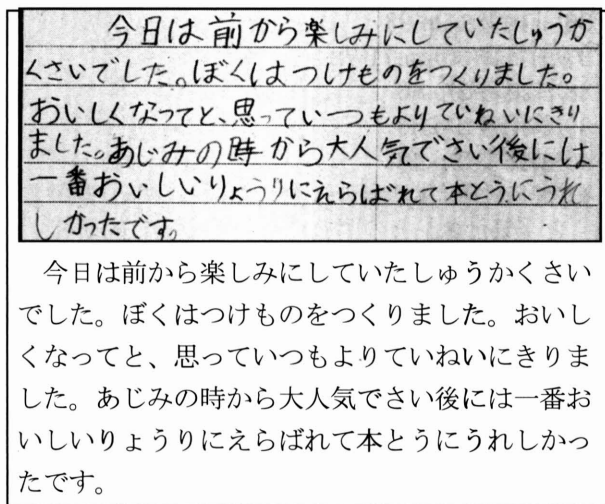 今日は前から楽しみにしていたしゅうか
くさいでした。ぼくはつけものをつくりました。
おいしくなってと、思っていつもよりていねいにきり
ました。あじみの時から大人気でさい後には
一番おいしいりょうりにえらばれて本とうにうれ
しかったです。
今日は前から楽しみにしていたしゅうかくさい
でした。ぼくはつけものをつくりました。おいし
くなってと、思っていつもよりていねいにきりま
した。あじみの時から大人気でさい後には一番お
いしいりょうりにえらばれて本とうにうれしかっ
たです。